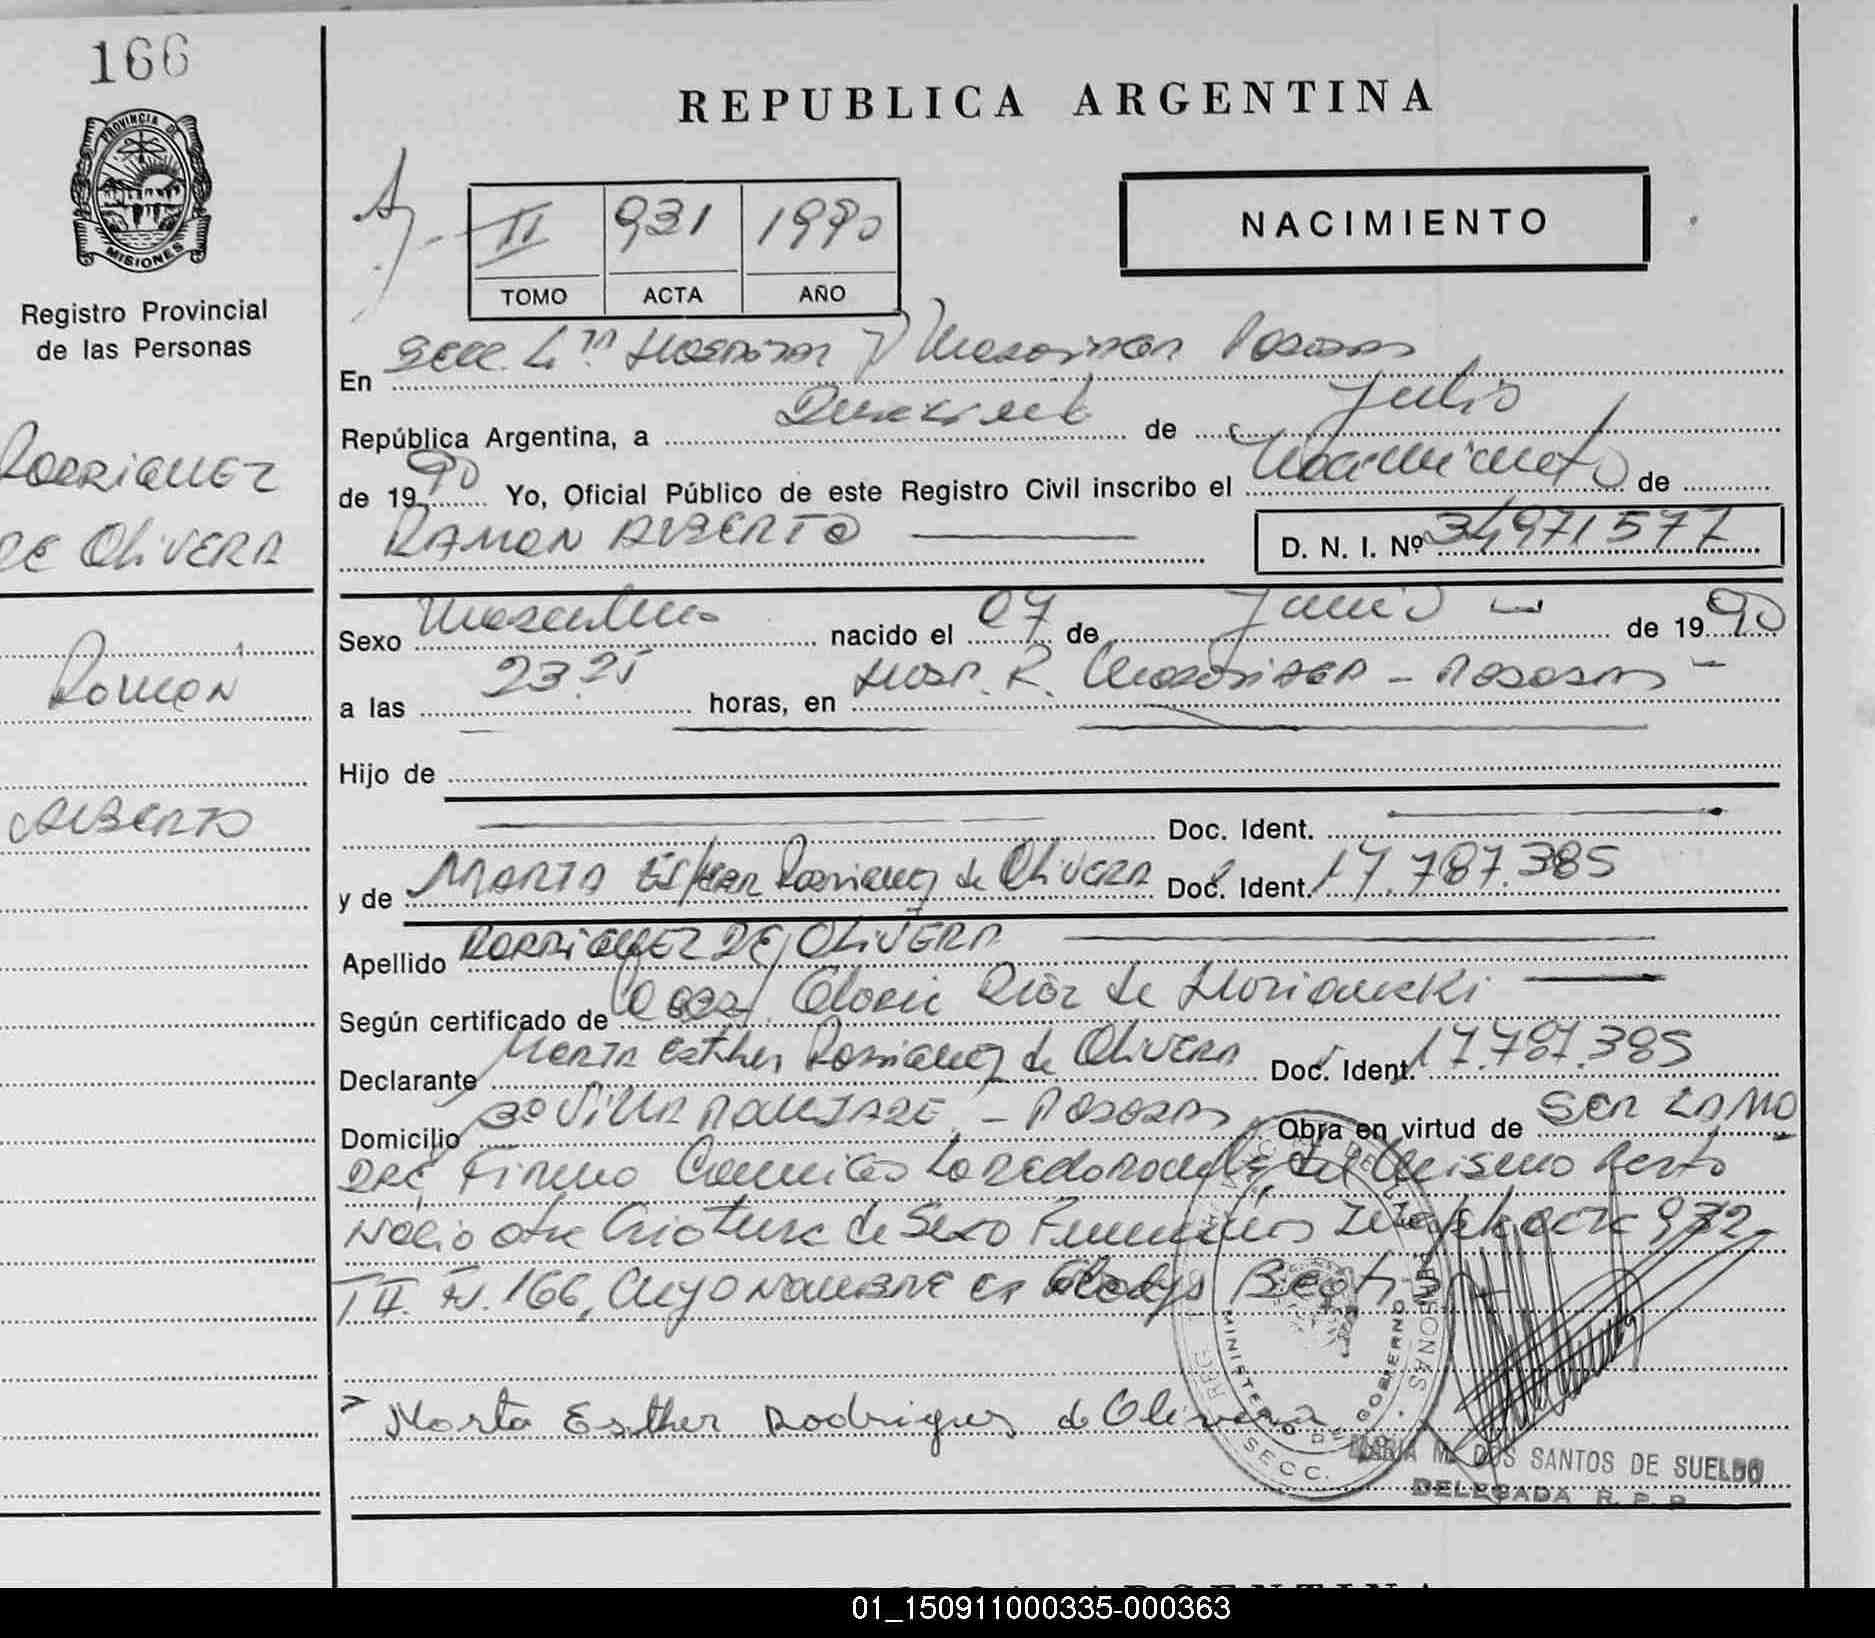 166
PROVINCIA DE
MISIONES
Registro Provincial
de las Personas
RODRIGUEZ
DE OLIVERA
Ramón
ALBERTO
REPUBLICA ARGENTINA
II 931 1990
TOMO ACTA AÑO
NACIMIENTO
En Secc. 4ta Hospital R Madariaga Posadas
República Argentina, a de Julio
de 1990 Yo, Oficial Público de este Registro Civil inscribo el Nacimiento de
RAMON ALBERTO
D. N. I. Nº 34971577
Sexo Masculino nacido el 07 de Junio de 1990
a las 23.25 horas, en Hosp. R. Madariaga - Posadas
Hijo de
Doc. Ident.
y de MARTA Esther Rodriguez de OLIVERA Doc. Ident. 17.787.385
Apellido RODRIGUEZ DE OLIVERA
Según certificado de Gloria Diaz de
Declarante Marta Esther Rodriguez de OLIVERA Doc. Ident. 17.787.385
Domicilio Bº VILLA - POSADAS Obra en virtud de SER LA MA
DRE, Firma del mismo Parto
Nacio otra Criatura de Sexo Femenino acta 932
T II. F. 166, Cuyo NOMBRE es Gladys Beatriz
Marta Esther Rodrigues de Olivera
MINISTERIO DE GOBIERNO
SECC.
MARIA M. DOS SANTOS DE SUELDO
DELEGADA R. P. P.
ARGENTINA
01_150911000335-000363